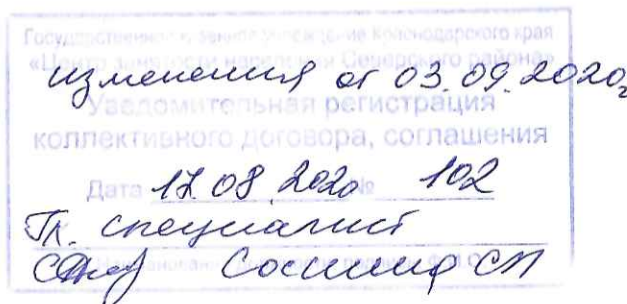 Государственное казенное учреждение Краснодарского края
«Центр занятости населения Северского района»
изменения от 03.09.2020г
Уведомительная регистрация
коллективного договора, соглашения
Дата 17.08.2020 № 102
Гл. специалист